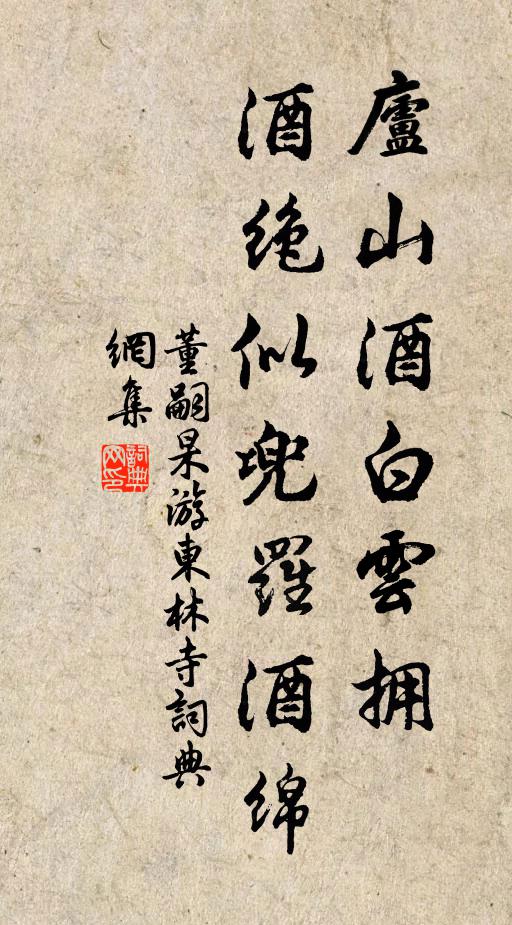 廬山酒白雲拥
酒绝似兜羅酒綿
董嗣杲游東林寺詞典
網集
詞典网印